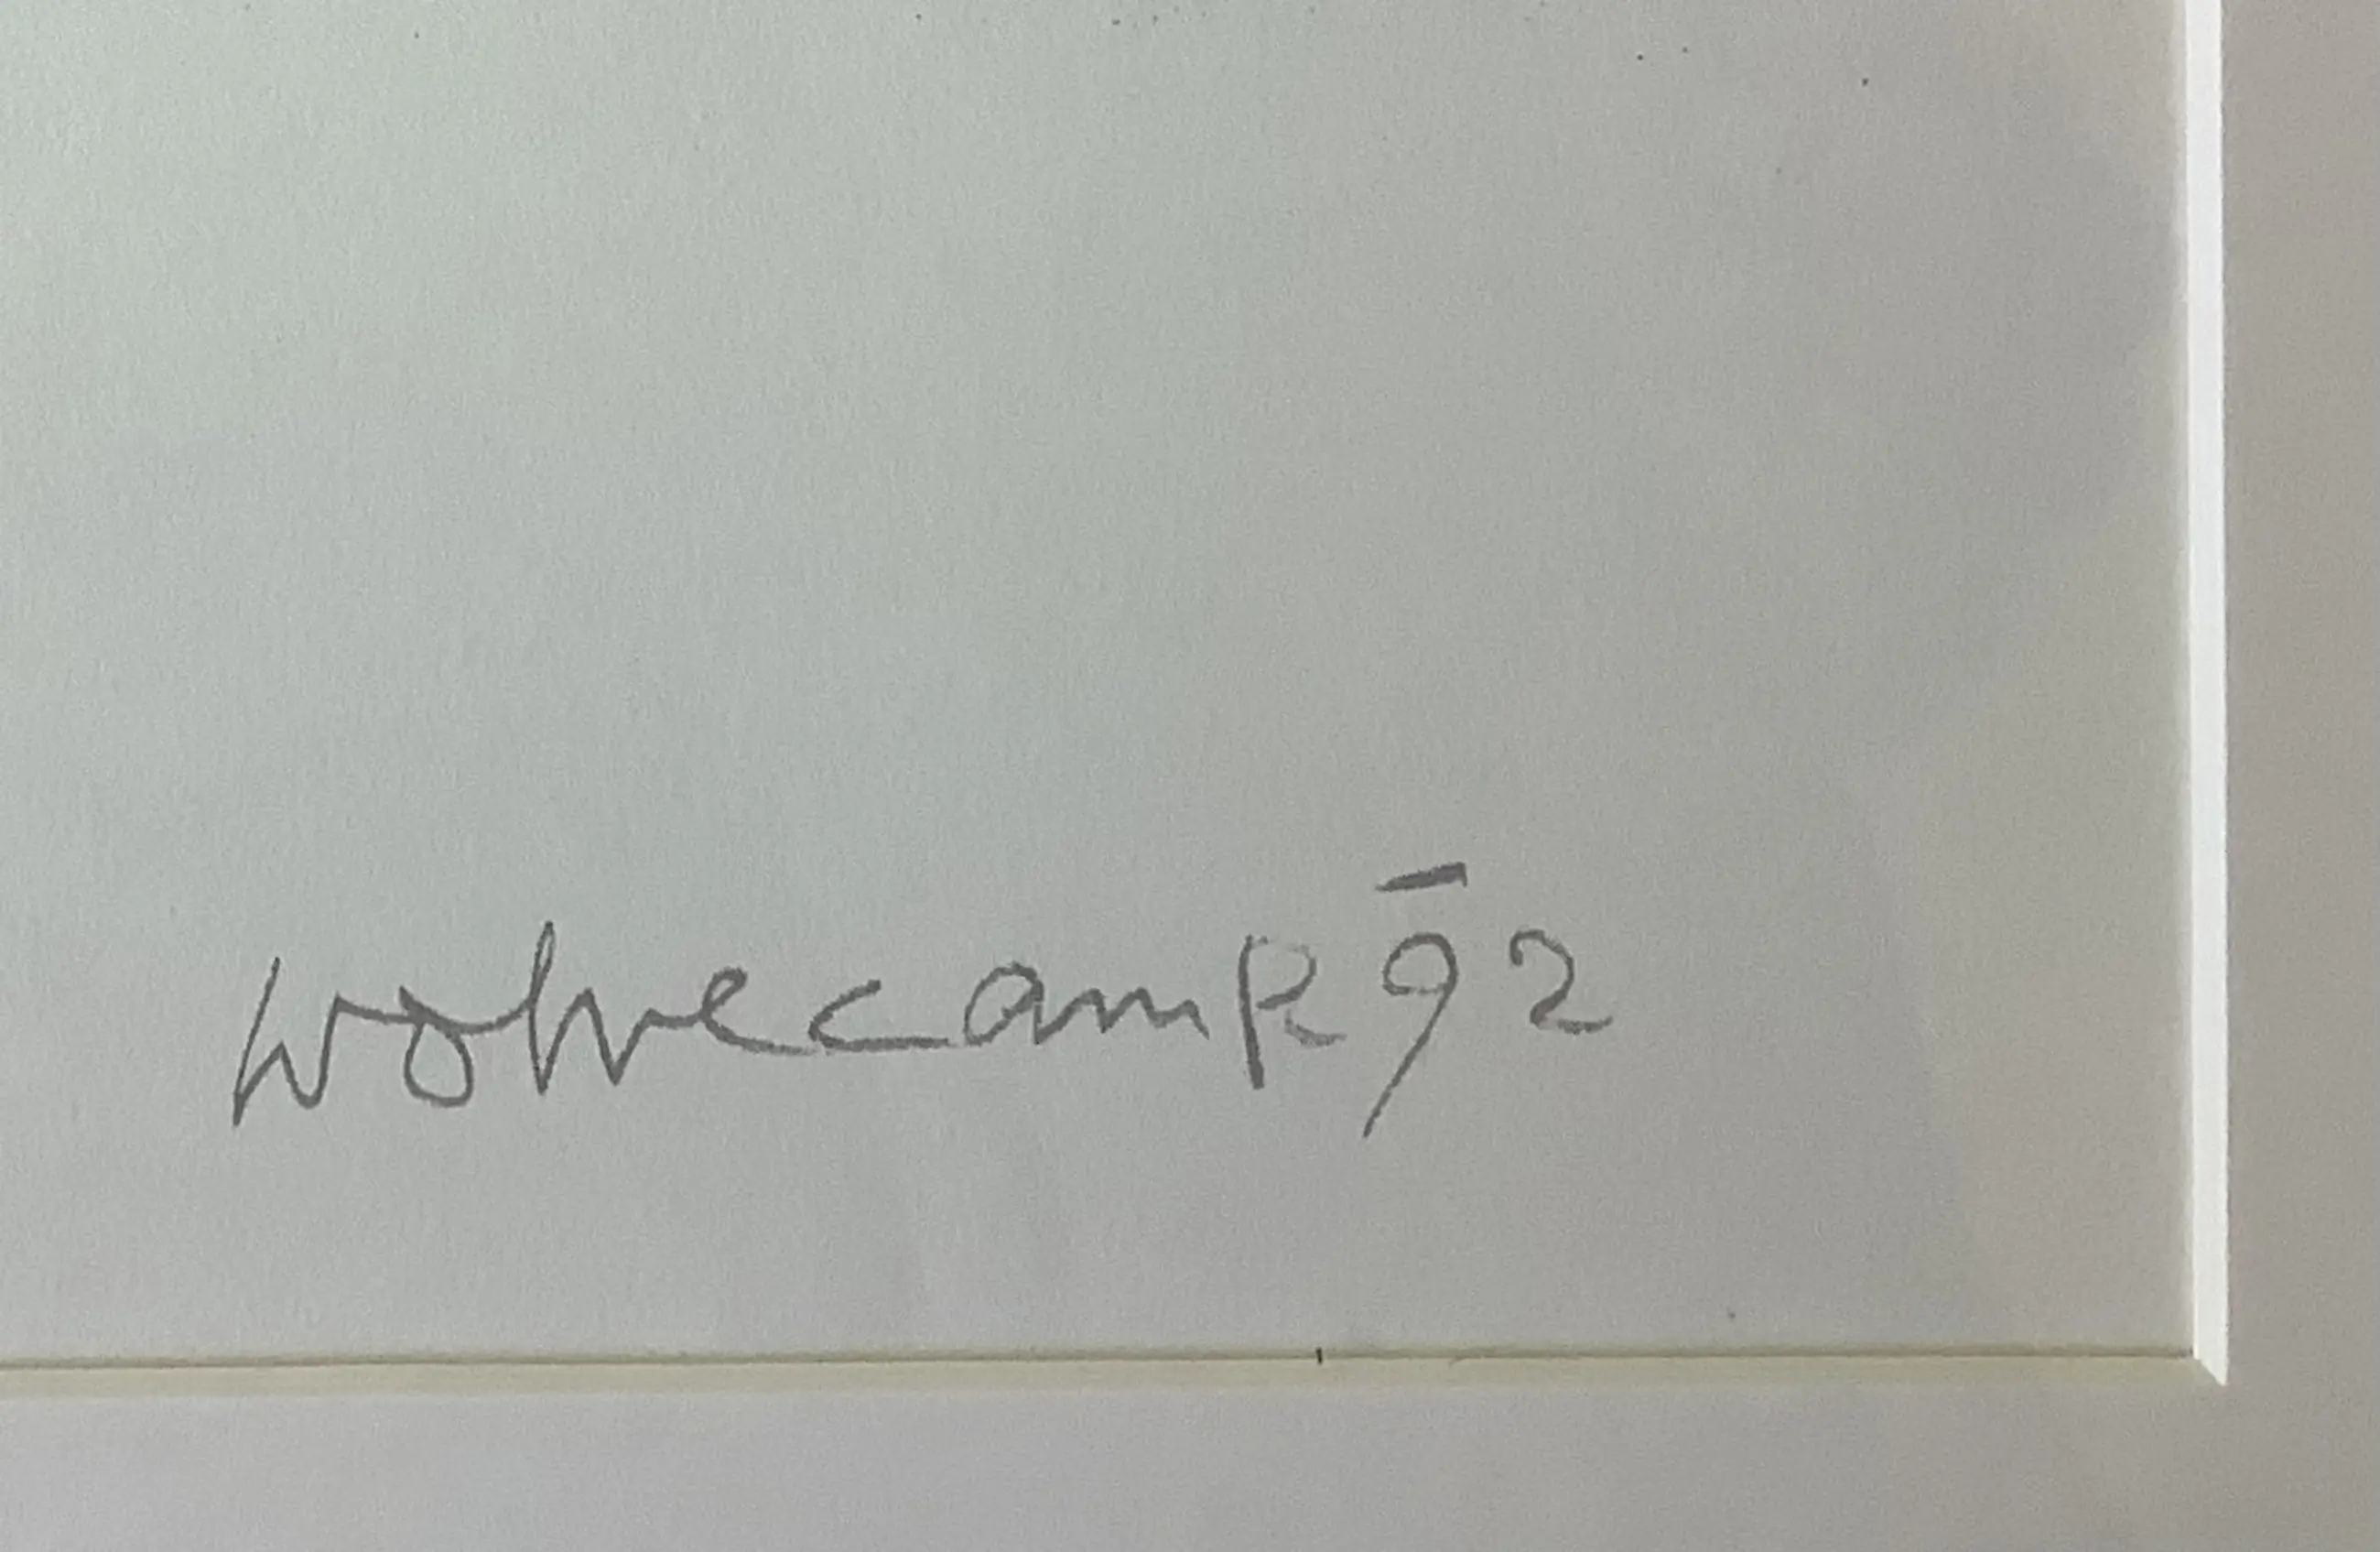 wolvecamp 92